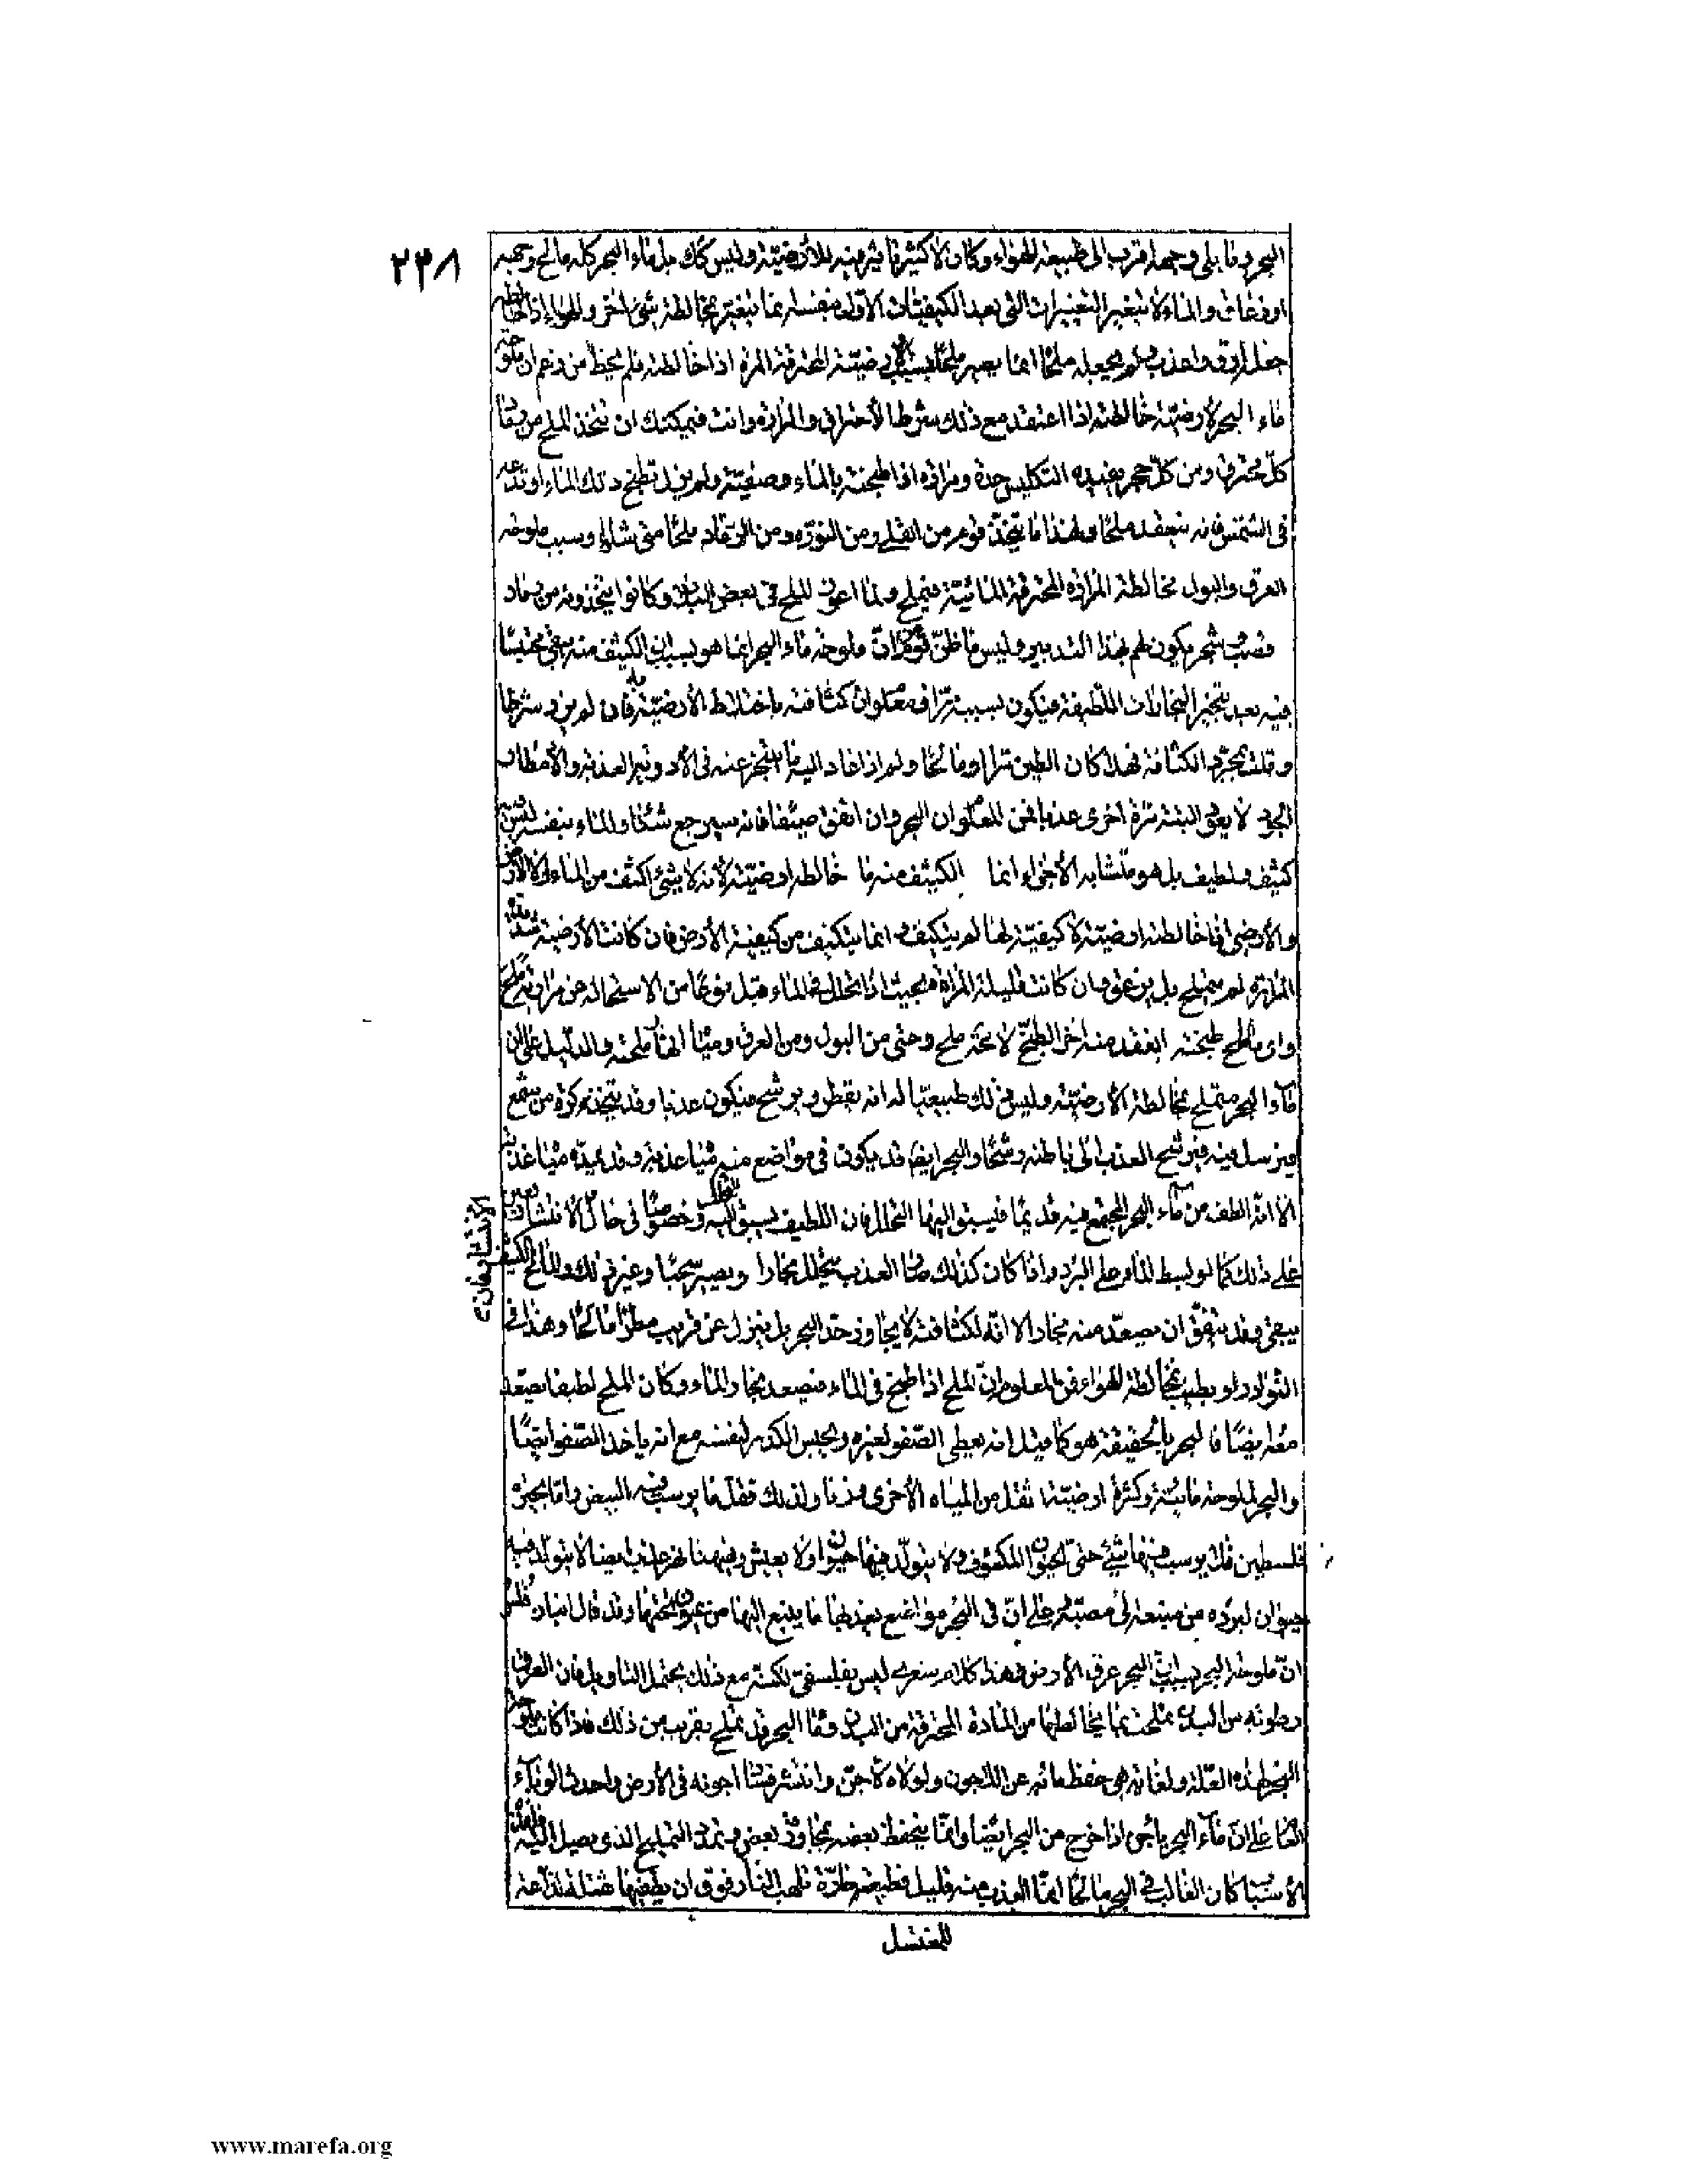 ٢٣٨
البحر وما يلي وجهه اقرب الى طبيعة الهواء وكان لا كثير تأثير فيه للأرضيّة وليس كك بل ماء البحر كله مالح وجهه
او زعاق والماء لا يتغير التغيرات التى بعد الكيفيات الاولى بنفسه انما يتغير بمخالطة شئ اخر والهواء اذا خالطه
جعله ارق واعذب ولم يجعله ملحا انما يصير ملحا بسبب الارضيّة المحترقة المرة اذا خالطته فلم يخط من زعم ان ملوحة
ماء البحر لارضيّة خالطته اذا اعتقد مع ذلك شرط الاحتراق والمرارة وانت فيمكنك ان تتخذ الملح من رماد
كل محترق ومن كل حجر يفيده التكليس حدة ومرارة اذا طبخته بالماء وصفيته ولم يزل تطبخ ذلك الماء او تدعه
فى الشمس فانه ينعقد ملحا ولهذا ما يتخذ قوم من القلى ومن النورة ومن الرماد ملحا متى شاؤا وسبب ملوحة
العرق والبول مخالطة المرارة المحترقة المائيّة فيملح ولما اعوز الملح فى بعض البلاد وكانوا يتخذونه من رماد
قصب شجر يكون لهم بهذا التدبير وليس ما ظن قوم ان ملوحة ماء البحر انما هو بسبب ان الكثيف منه يبقى محتبسا
فيه بعد تبخر البخارات اللطيفة فيكون بسببه مرّا ومعلوم ان كثافته باختلاط الأرضيّة به فان لم يزد شرطا
وقلت بمجرد الكثافة فهذا كان الطين مرا او مالحا ولم اذا عاد اليه ما يتبخر عنه فى الأودية العذبة والأمطار
الجود لا يعود البتة مرة اخرى عذبا فمن المعلوم ان البحر وان اتفق صيفا فانه سيرجع شتاء والماء بنفسه ليس فيه
كثيف ولطيف بل هو متشابه الأجزاء انما الكثيف منه ما خالطه ارضيّة لأنه لا شئ اكثف من الماء الا الأرض
والأرضى فاذا خالطته ارضيّة لا كيفيّة لها لم يتكيف به انما يتكيف من كيفية الأرض فان كانت الأرضية شديدة
المرارة لم يتملح بل يزعق وان كانت قليلة المرارة بحيث اذا تحلل فى الماء قبل نوعا من الاستحالة عن مرارته ملح
واى مالح طبخته انعقد منه اخر الطبخ لا محة ملح وحتى من البول ومن العرق ومياه المالحة والدليل على ان
ماء البحر يتملح بمخالطة الأرضيّة وليس ذلك طبيعيا له انه يقطر ويرشح فيكون عذبا وقد يتخذ كرة من شمع
فيرسل فيه فيرشح العذب الى باطنه رشحا والبحر ايضا قد يكون فى مواضع منه مياه عذبة وقد يمده مياه عذبة
الا انه الطف من ماء البحر المجتمع فيه قديما فيسبق اليها التحلل فان اللطيف يسبق اليه التحلل وخصوصا فى حال الانتشار يعين
الانتشار يعين
على ذلك كما لو بسط الماء على البر واذا كان كذلك صار العذب يتحلل بخارا ويصير سحبا وغير ذلك والمالح الكثيف
يبقى وقد يتفق ان يصعد منه بخار الا انه لكثافته لا يجاوز حد البحر بل ينزل عن قريب مطرا مالحا وهذا فى
النوادر ولو يطيب بمخالطة الهواء فمن المعلوم ان الملح اذا طبخ فى الماء فيصعد بخار الماء وكان الملح لطيفا يصعد
معه ايضا فالبحر بالحقيقة هو كما قيل انه يعطى الصفو لغيره ويحبس الكدر لنفسه مع انه ياخذ الصفو ايضا
والبحر لملوحة مائيته وكثرة ارضيته اثقل من المياه الأخرى وزنا ولذلك فقل ما يرسب فيه البيض واما بحيرة
فلسطين فلا يرسب فيها شئ حتى الحيوان المكتوف ولا يتولد فيها حيوان ولا يعيش وفيها نهر عذب ايضا لا يتولد فيه
حيوان لبرده من منبعه الى مصبه على ان فى البحر مواضع يعذبها ما ينبع اليها من عيون تحتها وقد قال انبادقلس
ان ملوحة البحر بسبب ان البحر عرق الأرض وهذا كلام شعرى ليس بفلسفى لكنه مع ذلك يحتمل التاويل فان العرق
رطوبة من البدن تملحت بما يخالطها من المادة المحترقة من البدن وماء البحر قد تملح بقريب من ذلك فاذا كانت ملوحة
البحر لهذه العلة ولغاية هى حفظ مائه عن الاجون ولولاه لأجن وانتشر فساد اجونه فى الأرض واحدث الوباء
العام على ان ماء البحر يأجن اذا خرج من البحر ايضا وانما ينحفظ بعضه بمجاورة بعض وبمدد التمليح الذى يصل اليه
الأسباب كان الغالب فى البحر مالحا انما العذب منه قليل وطبيعة حارة تلهب النار فوق ان يطفيها هذا لذاعة
للمغتسل
www.marefa.org